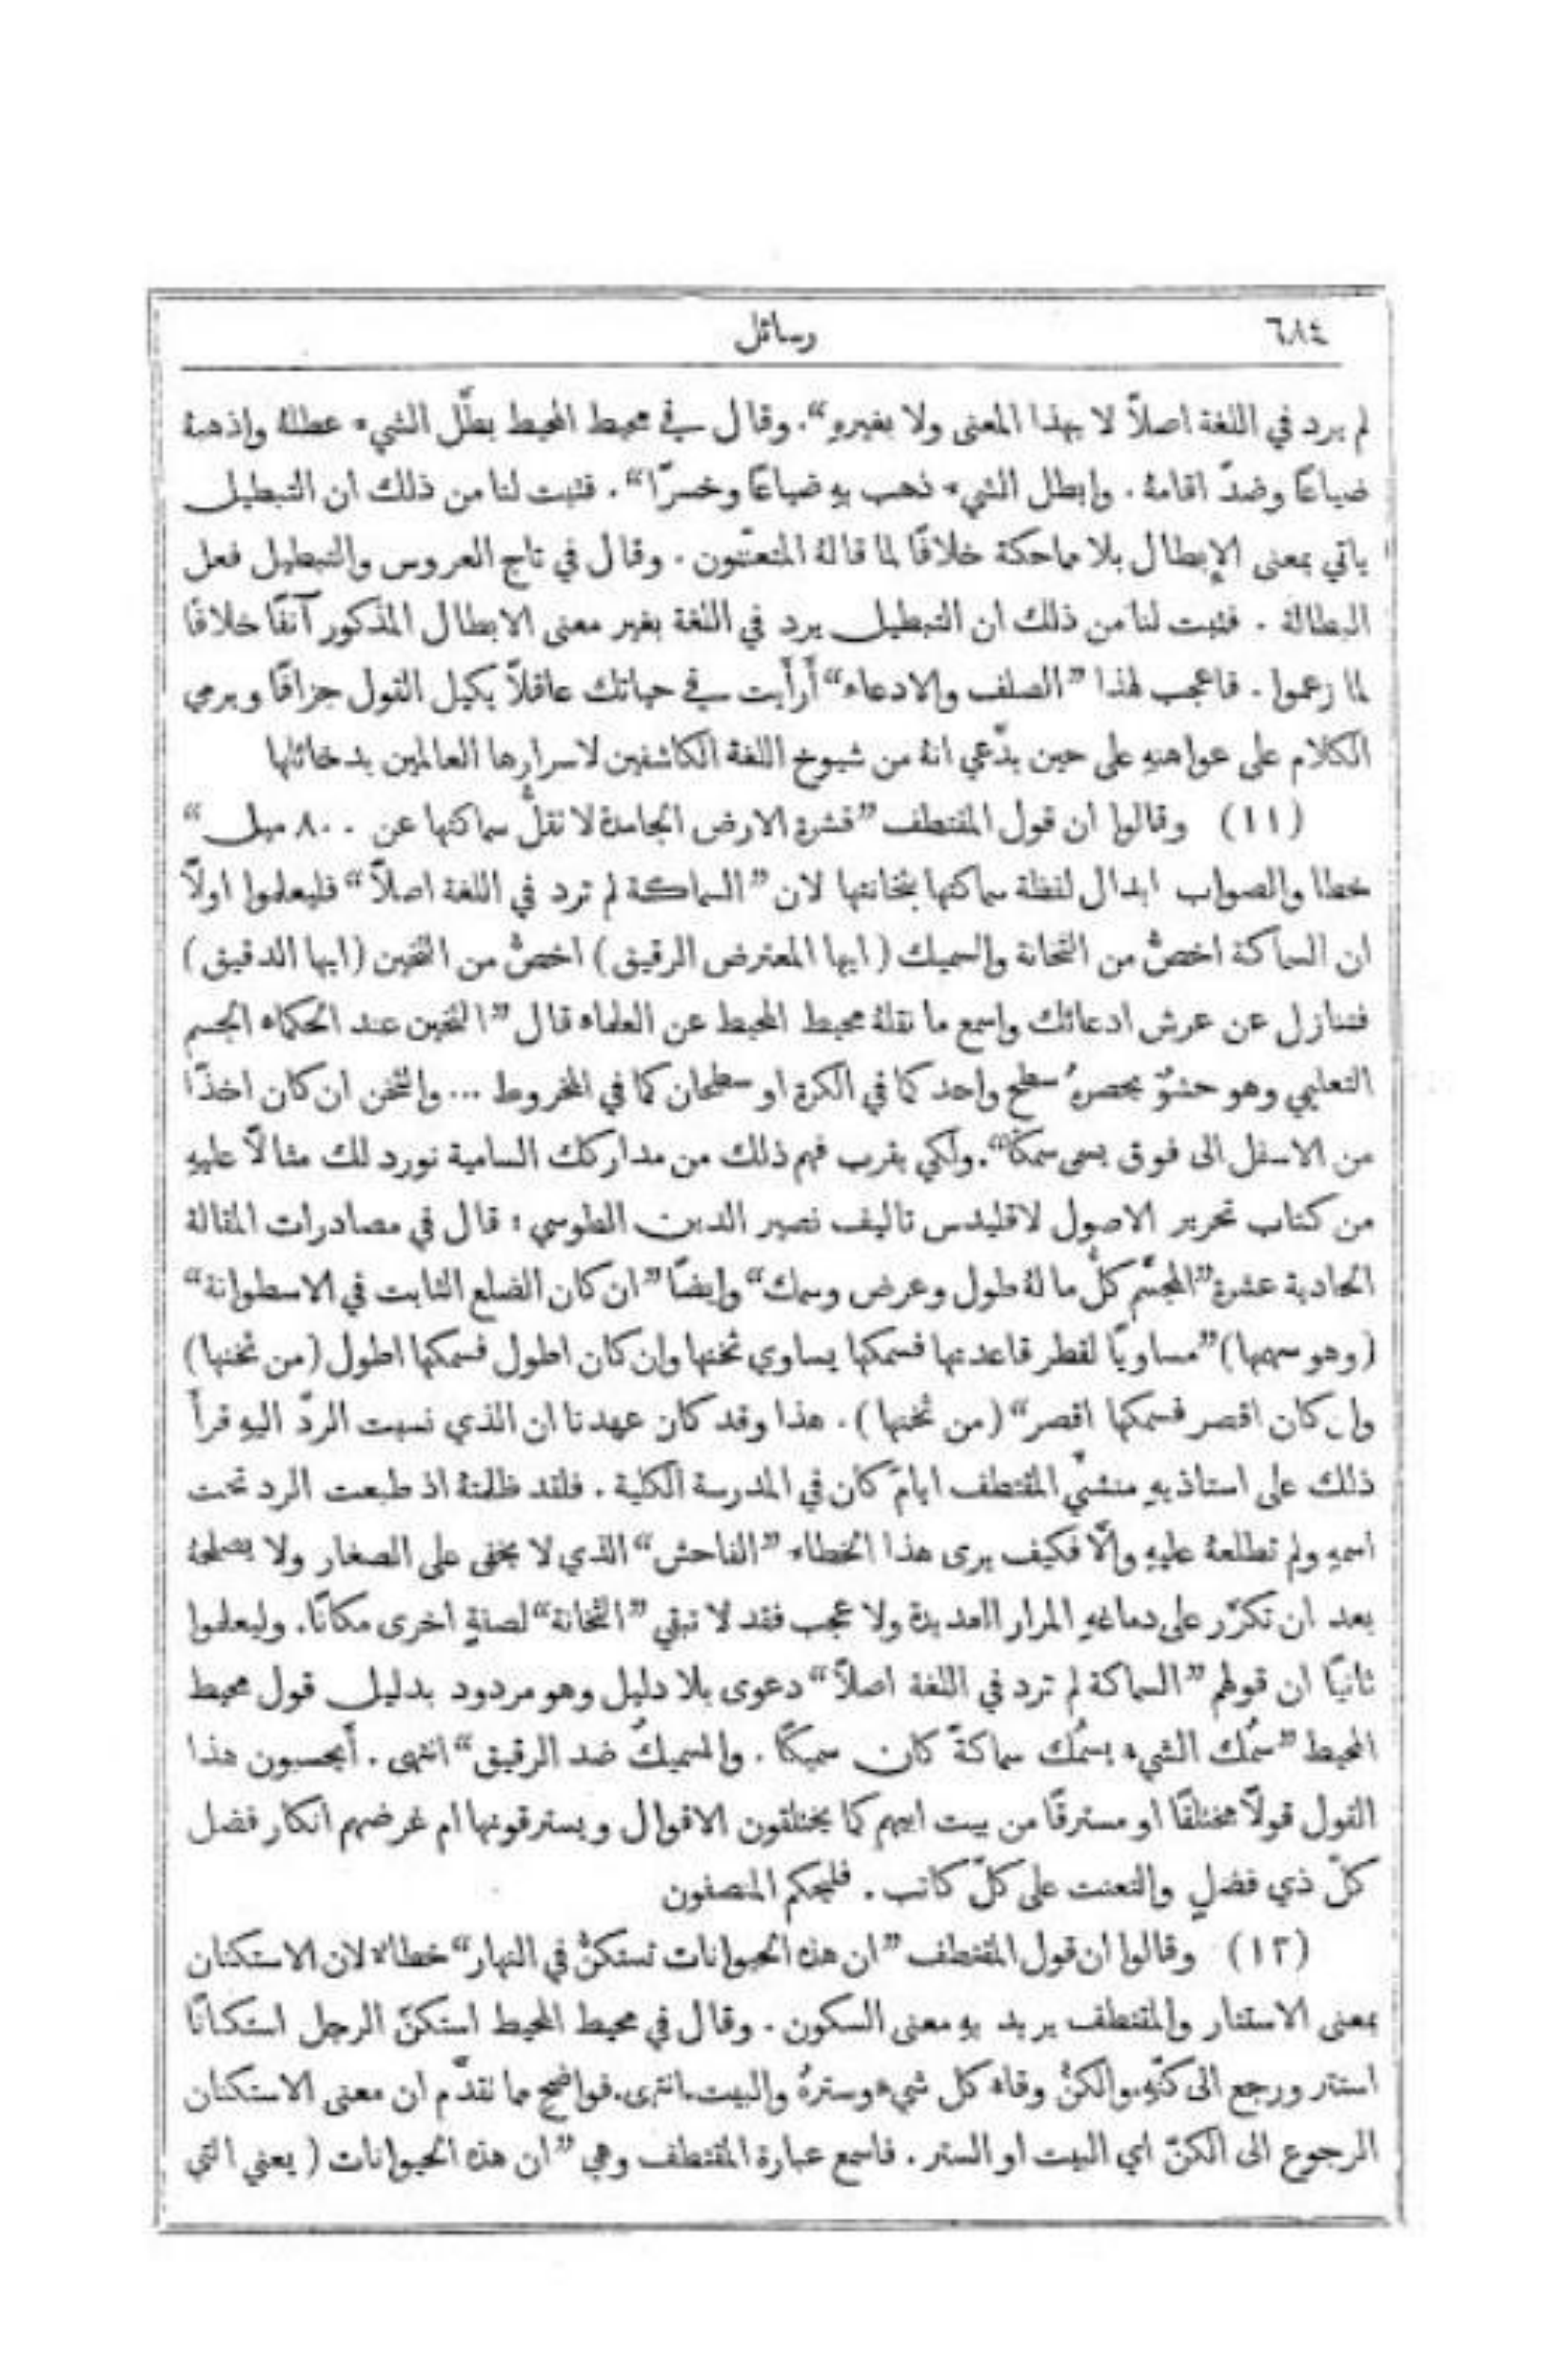 ٦٨٤
رسائل
لم يرد في اللغة اصلاً لا بهذا المعنى ولا بغيرهِ“. وقال في محيط المحيط بطَّل الشيء عطلهُ واذهبهُ
ضياعًا وضدّ اقامهُ . وابطل الشيء ذهب بهِ ضياعًا وخسرًا“ . فثبت لنا من ذلك ان التبطيل
ياتي بمعنى الإبطال بلا مماحكة خلافًا لما قالهُ المتعنّتون . وقال في تاج العروس والتبطيل فعل
البطالة . فثبت لنا من ذلك ان التبطيل يرد في اللغة بغير معنى الابطال المذكور آنفًا خلافًا
لما زعموا . فاعجب لهذا ”الصلف والادعاء“ أَرأَيت في حياتك عاقلاً يكيل القول جزافًا ويرمي
الكلام على عواهنهِ على حين يدَّعي انهُ من شيوخ اللغة الكاشفين لاسرارها العالمين بدخائلها
(١١) وقالوا ان قول المقتطف ”قشرة الارض الجامدة لا تقلُّ سماكتها عن ٨٠٠ ميل“
خطا والصواب ابدال لفظة سماكتها بثخانتها لان ”السماكة لم ترد في اللغة اصلاً“ فليعلموا اولاً
ان السماكة اخصُّ من الثخانة والسميك (ايها المعترض الرقيق) اخصُّ من الثخين (ايها الدقيق)
فتنازل عن عرش ادعائك واسمع ما نقلهُ محيط المحيط عن العلماء قال ”الثخين عند الحكماء الجسم
التعليمي وهو حشوٌ يحصرهُ سطح واحد كما في الكرة او سطحان كما في المخروط ... والثخن ان كان اخذًا
من الاسفل الى فوق يسمى سمكًا“. ولكي يقرب فهم ذلك من مداركك السامية نورد لك مثالاً عليهِ
من كتاب تحرير الاصول لاقليدس تاليف نصير الدين الطوسي : قال في مصادرات المقالة
الحادية عشرة ”المجسَّم كلُّ ما لهُ طول وعرض وسمك“ وايضًا ”ان كان الضلع الثابت في الاسطوانة“
(وهو سهمها) ”مساويًا لقطر قاعدتها فسمكها يساوي ثخنها وان كان اطول فسمكها اطول (من ثخنها)
وان كان اقصر فسمكها اقصر“ (من ثخنها) . هذا وقد كان عهدنا ان الذي نسبت الردّ اليهِ قرأ
ذلك على استاذيهِ منشئَي المقتطف ايامَ كان في المدرسة الكلية . فلقد ظلمتهُ اذ طبعت الرد تحت
اسمهِ ولم تطلعهُ عليهِ والَّا فكيف يرى هذا الخطاء ”الفاحش“ الذي لا يخفى على الصغار ولا يصلحهُ
بعد ان تكرَّر على دماغهِ المرار العديدة ولا عجب فقد لا تبقي ”الثخانة“ لصفةٍ اخرى مكانًا. وليعلموا
ثانيًا ان قولهم ”السماكة لم ترد في اللغة اصلاً“ دعوى بلا دليل وهو مردود بدليل قول محيط
المحيط ”سمُك الشيء يسمُك سماكةً كان سميكًا . والسميكُ ضد الرقيق“ انتهى . أَيحسبون هذا
القول قولاً مختلقًا او مسترقًا من بيت ابيهم كما يختلقون الاقوال ويسترقونها ام غرضهم انكار فضل
كلّ ذي فضلٍ والتعنت على كلّ كاتب . فليحكم المنصفون
(١٢) وقالوا ان قول المقتطف ”ان هذه الحيوانات تستكنُّ في النهار“ خطاء لان الاستكنان
بمعنى الاستتار والمقتطف يريد بهِ معنى السكون . وقال في محيط المحيط استكنّ الرجل استكنانًا
استتر ورجع الى كنّهِ.والكنُّ وقاء كل شيء وسترهُ والبيت.انتهى.فواضح مما تقدَّم ان معنى الاستكنان
الرجوع الى الكنّ اي البيت او الستر . فاسمع عبارة المقتطف وهي ”ان هذه الحيوانات (يعني التي